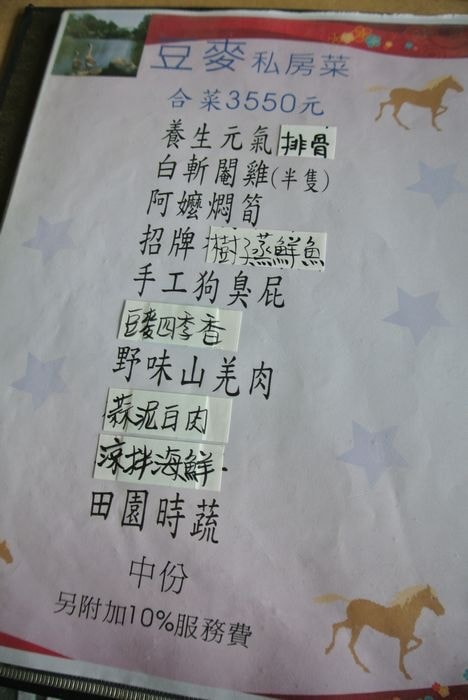 豆麥私房菜
合菜3550元
養生元氣排骨
白斬閹雞(半隻)
阿嬤燜筍
招牌樹子蒸鮮魚
手工狗臭屁
豆麥四季香
野味山羌肉
蒜泥白肉
涼拌海鮮
田園時蔬
中份
另附加10%服務費